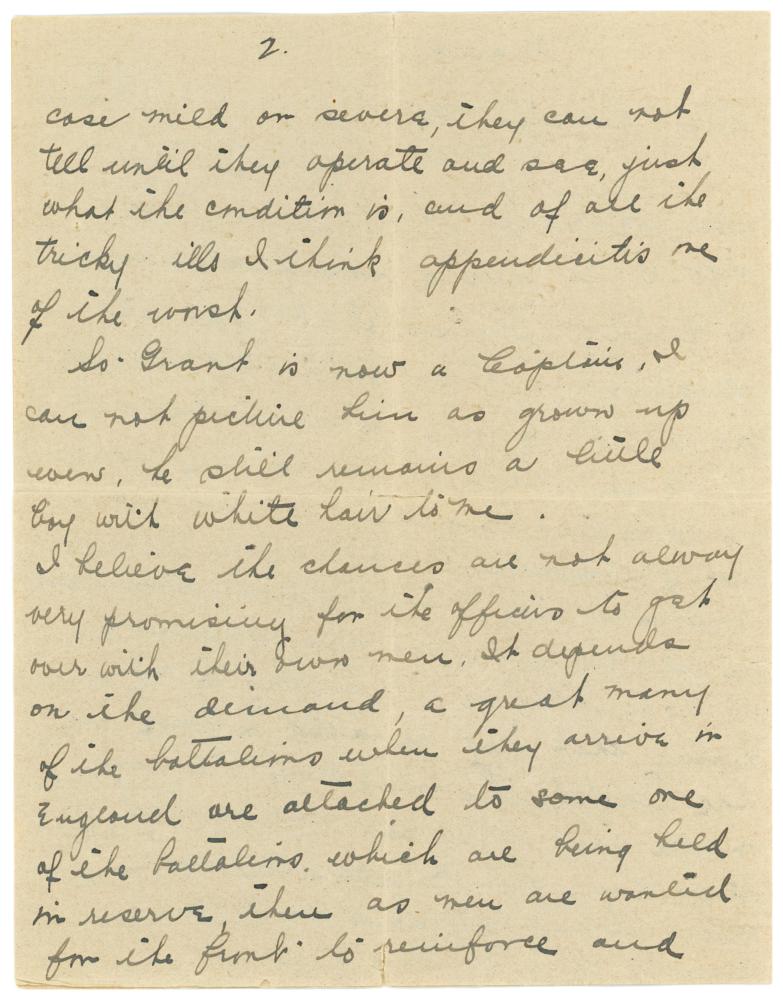 2.
case mild or severe, they can not
tell until they operate and see, just
what the condition is, and of all the
tricky ills I think appendicitis one
of the worst.
So Grant is now a Captain, I
can not picture him as grown up
even, he still remains a little
boy with white hair to me.
I believe the chances are not alway
very promising for the officers to get
over with their own men. It depends
on the demand, a great many
of the battalions when they arrive in
England are attached to some one
of the battalions. which are being held
in reserve, then as men are wanted
for the front to reinforce and